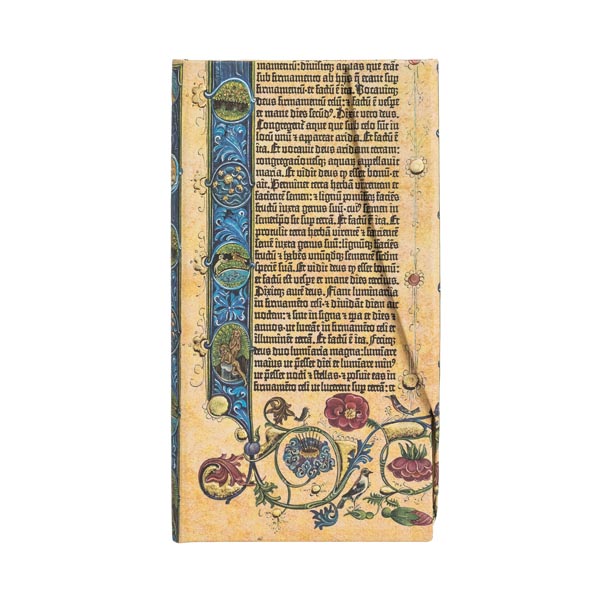 firmamentū: divisitq; aquas que erāt
sub firmamento ab hijs q̄ erant sup
firmamentū· et factū ē ita. Vocavitq;
deus firmamentū celū: ⁊ factū ē vespe
et mane dies secūd⁹. Dixit vero deus.
Congregent̄ aque que sub celo sūt in
locū unū ⁊ appareat arida. Et factū ē
ita. Et vocavit deus aridam terram:
congregacionesq; aquaꝝ appellavit
maria. Et vidit deus q esset bonū· et
ait. Germinet terra herbā virentem et
facientē semen: ⁊ lignū pomiferū faciēs
fructū iuxta genus suū· cui⁹ semen in
semetipo sit sup terrā. Et factū ē ita. Et
protulit terra herbā virentē ⁊ facientē
semē iuxta genus suū: lignūq; faciēs
fructū ⁊ habēs unūqdq; sementē scdm
speciē suā. Et vidit deus q esset bonū:
et factū est vespe et mane dies tercius.
Dixitq; autē deus. Fiant luminaria
in firmamēto celi· ⁊ dividāt diem ac
noctem: ⁊ sint in signa ⁊ tpa et dies ⁊
annos· ut luceāt in firmamēto celi et
illuminēt terrā. Et factū ē ita. Fecitq;
deus duo luminaria magna: lumiare
maius ut p̄esset diei et lumiare min⁹
ut p̄esset nocti ⁊ stellas· ⁊ posuit eas in
firmamēto celi ut lucerent sup terrā: et